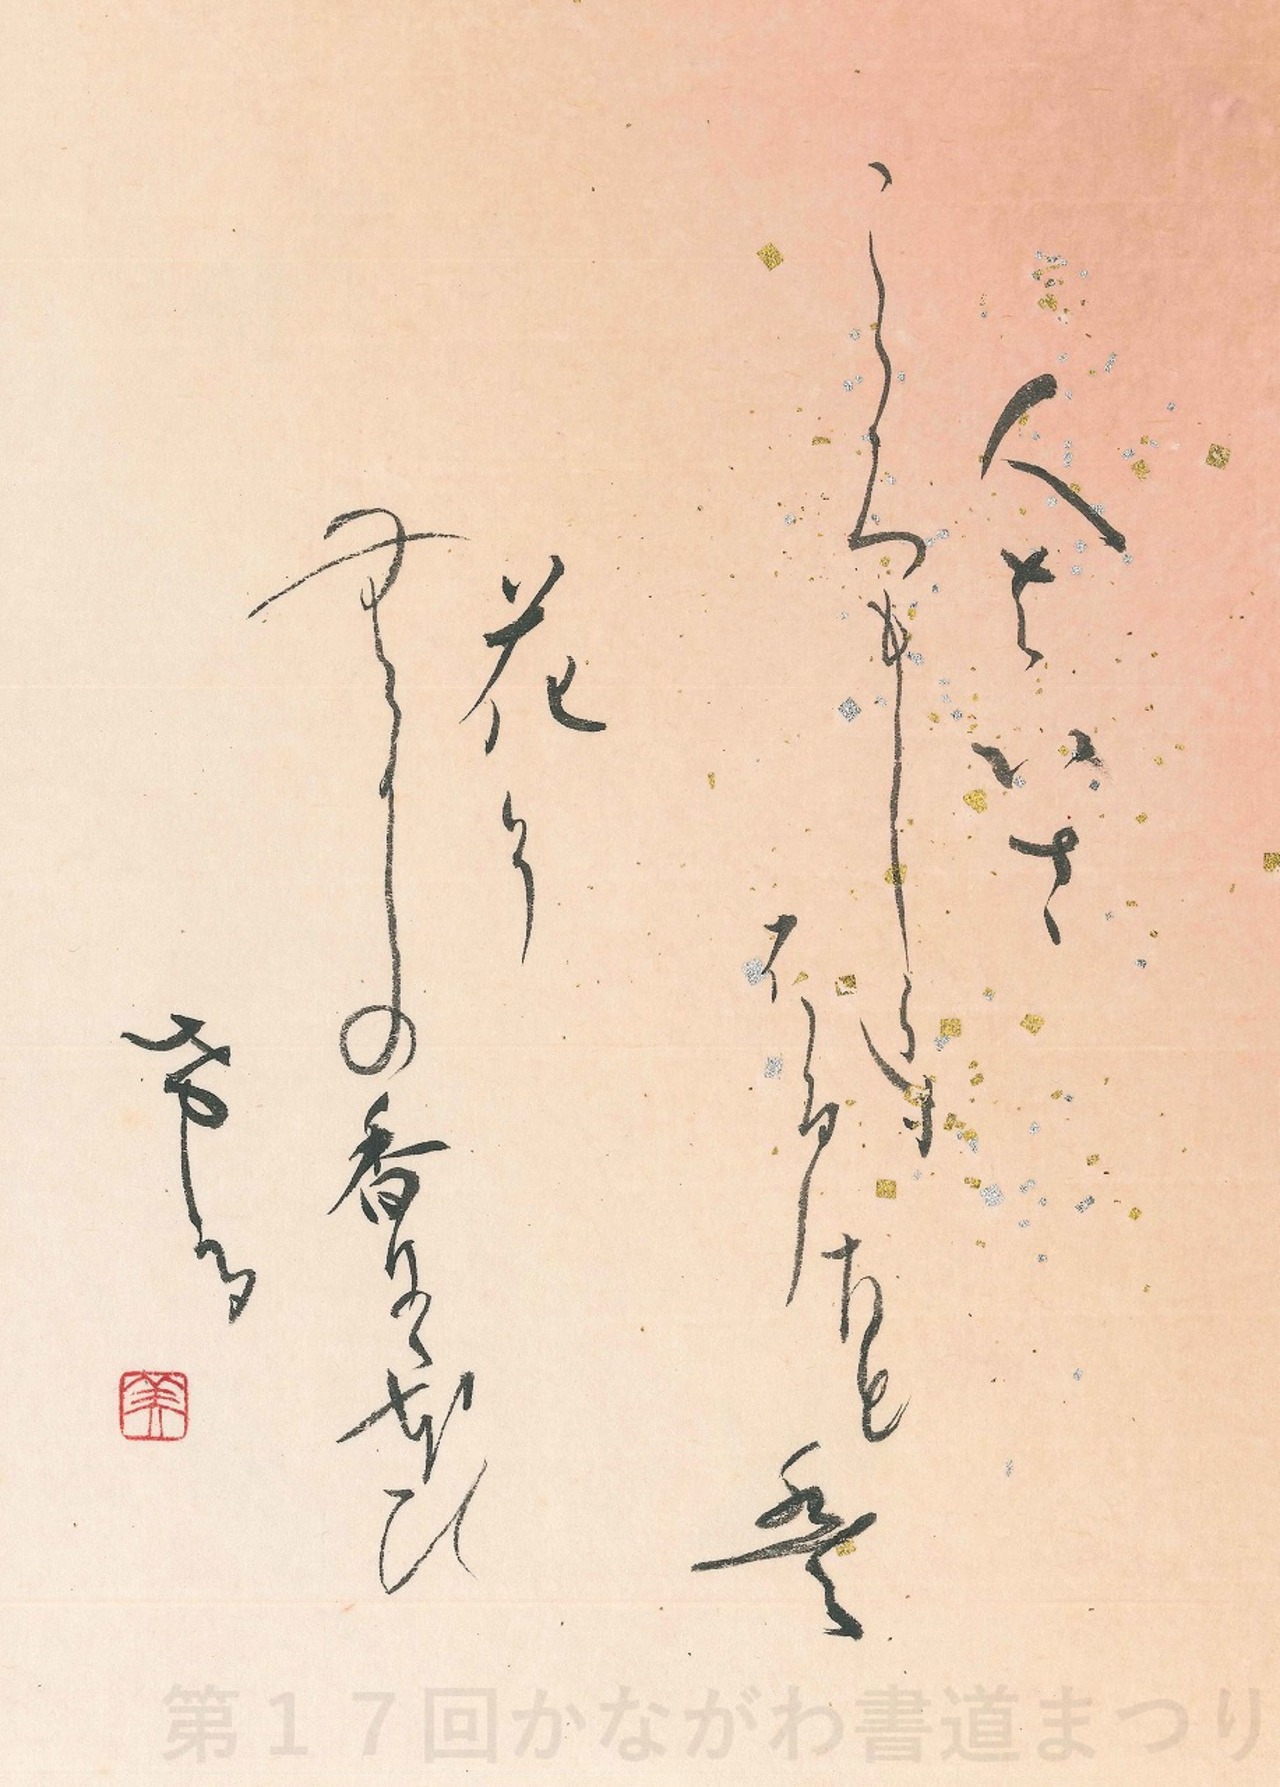 人はいさ
こゝろもしらす
ふるさとは
花そ
むかしの香にゝほひ
ける
第17回かながわ書道まつり